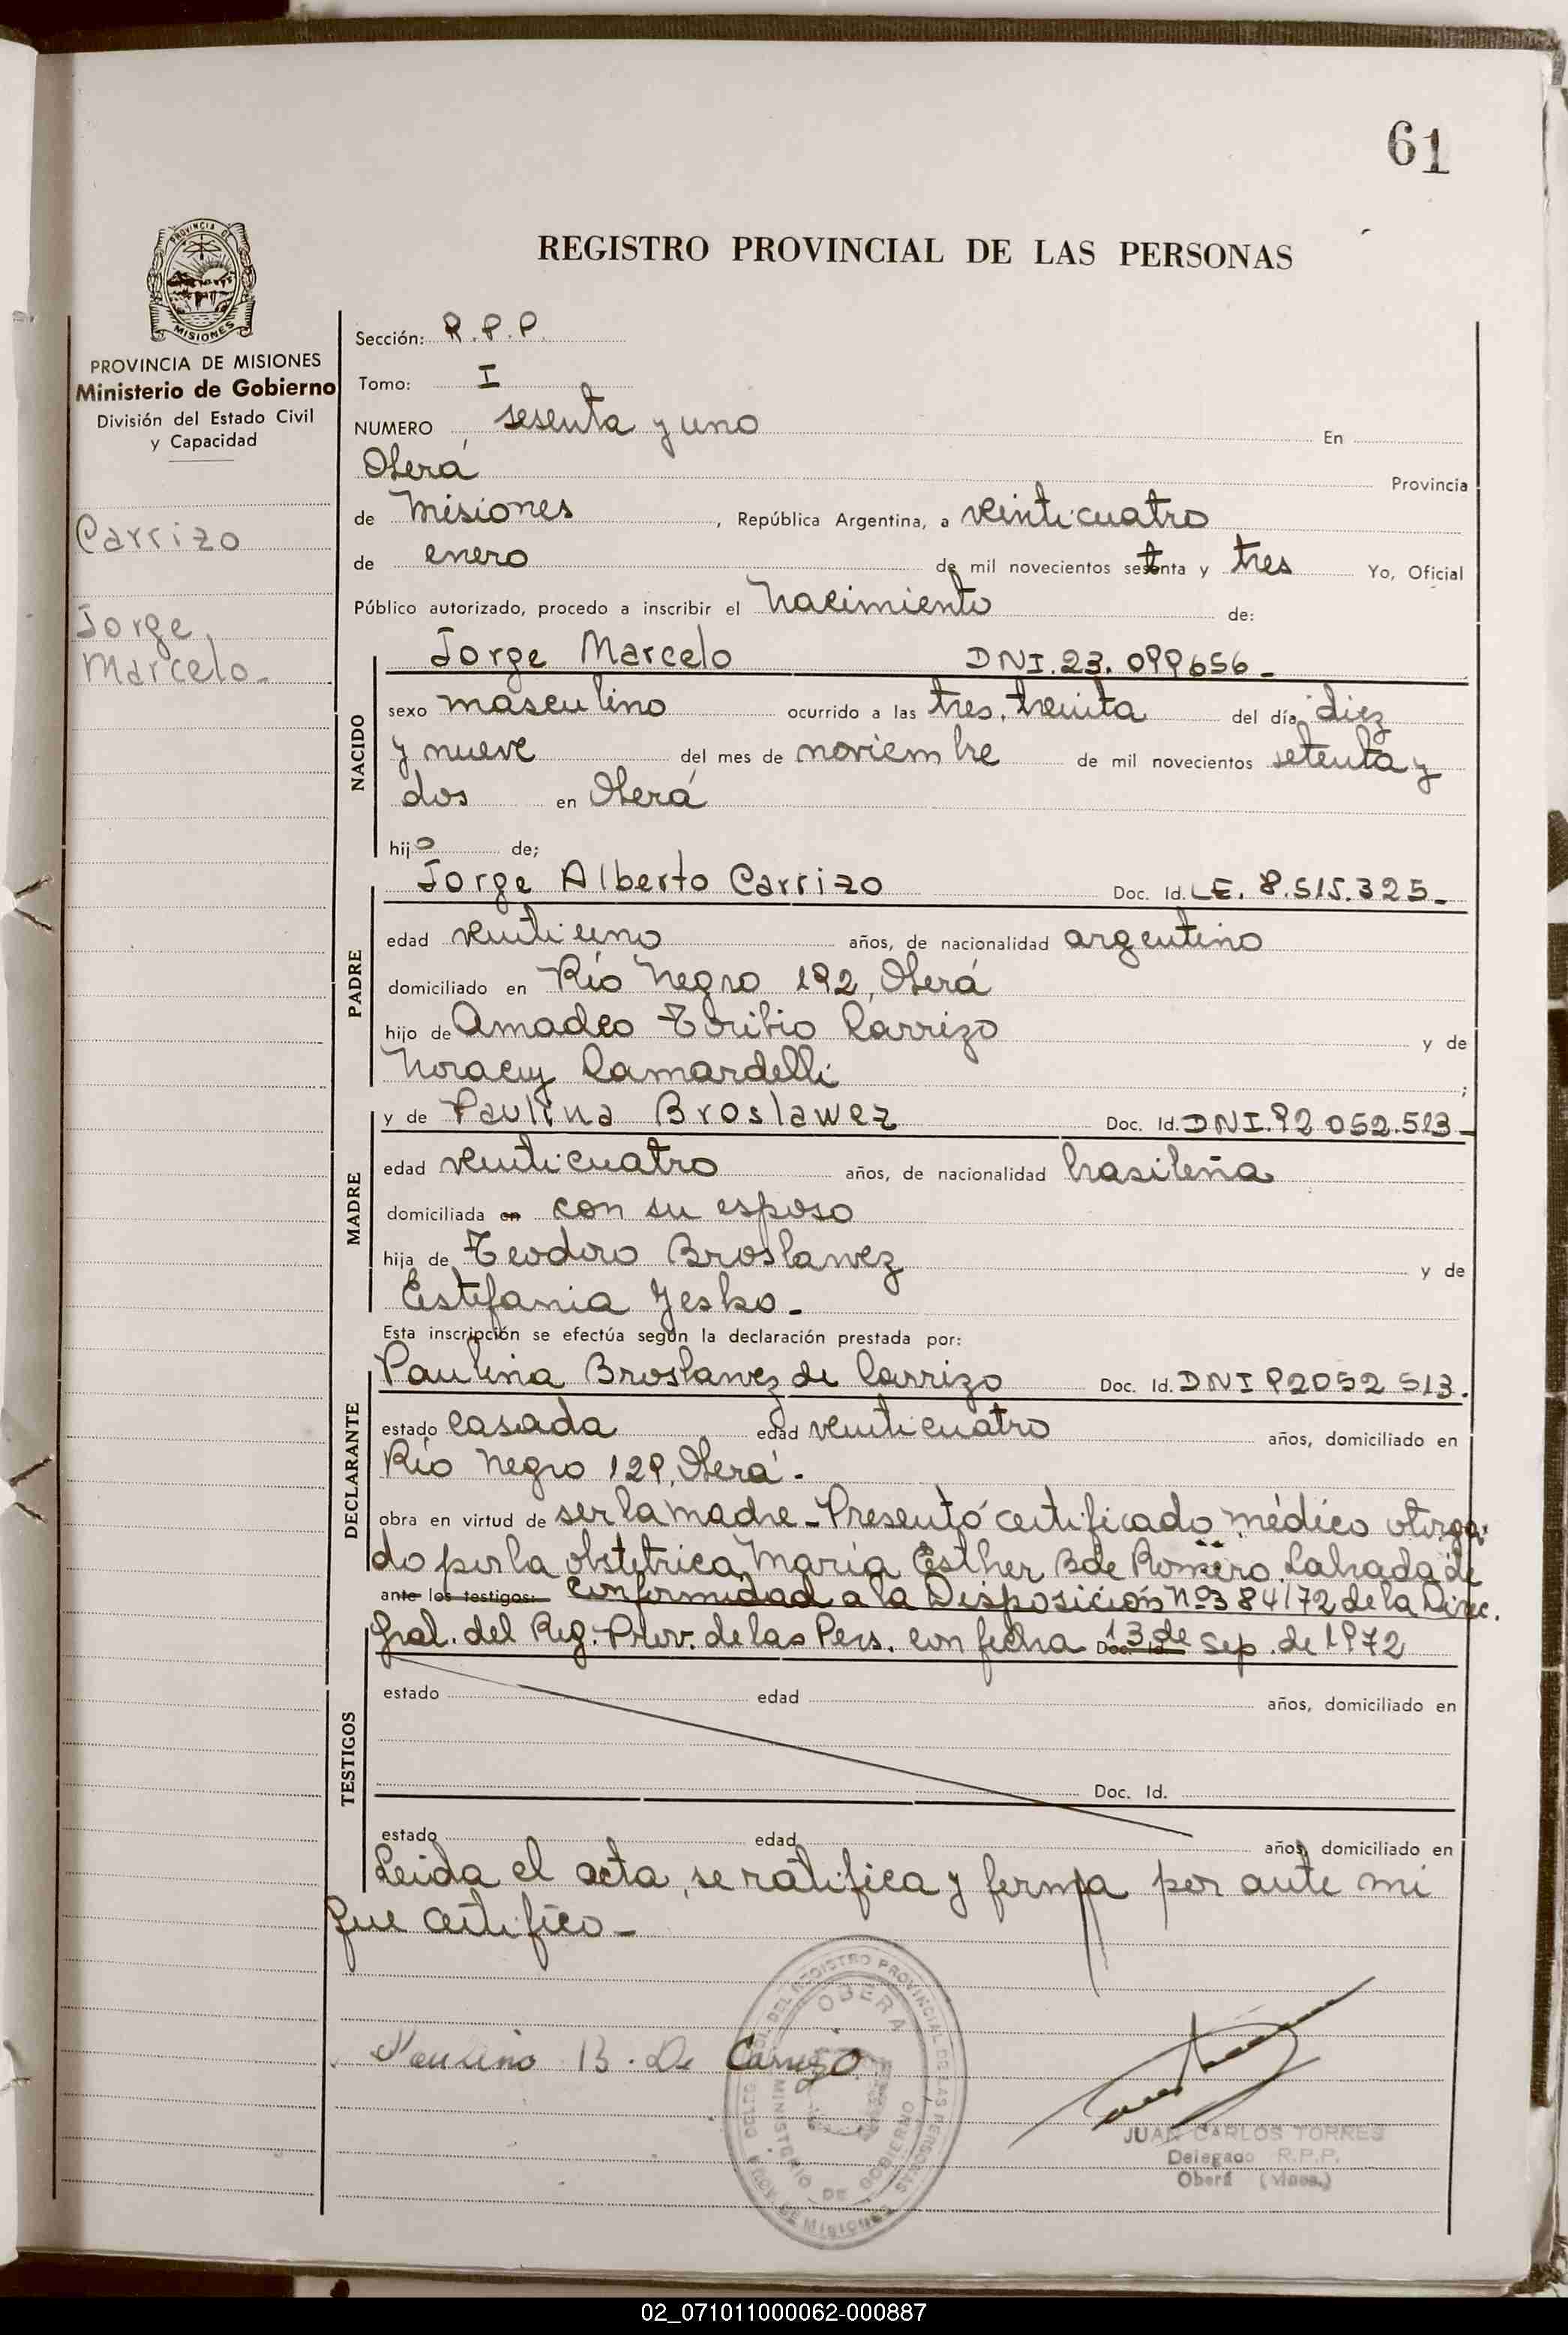 61
REGISTRO PROVINCIAL DE LAS PERSONAS
PROVINCIA DE MISIONES
Ministerio de Gobierno
División del Estado Civil
y Capacidad
Carrizo
Jorge
Marcelo.
Sección: R.P.P.
Tomo: I
NUMERO sesenta y uno En
Oberá Provincia
de Misiones, República Argentina, a veinticuatro
de enero de mil novecientos setenta y tres Yo, Oficial
Público autorizado, procedo a inscribir el Nacimiento de:
NACIDO
Jorge Marcelo DNI.23.099656-
sexo masculino ocurrido a las tres, treinta del día diez
y nueve del mes de noviembre de mil novecientos setenta y
dos en Oberá
hijo de;
PADRE
Jorge Alberto Carrizo Doc. Id. LE. 8.515.325-
edad veintiuno años, de nacionalidad argentino
domiciliado en Río Negro 192, Oberá
hijo de Amadeo Toribio Carrizo y de
Noracuy Camardelli ;
MADRE
y de Paulina Broslawez Doc. Id. DNI.92 052.513-
edad veinticuatro años, de nacionalidad brasileña
domiciliada en con su esposo
hija de Teodoro Broslawez y de
Estefania Yesko-
Esta inscripción se efectúa según la declaración prestada por:
DECLARANTE
Paulina Broslawez de Carrizo Doc. Id. DNI 92052 513.
estado casada edad veinticuatro años, domiciliado en
Río Negro 129, Oberá-
obra en virtud de ser la madre-Presentó certificado médico otorga
do por la obstetrica María Esther B de Romero. Labrada de
ante los testigos: conformidad a la Disposición Nº384/72 de la Direc.
Gral. del Reg. Prov. de las Pers. con fecha Doc. Id. 13 de Sep. de 1972
TESTIGOS
estado edad años, domiciliado en
Doc. Id.
estado edad años, domiciliado en
Leida el acta, se ratifica y firma por ante mi
que certifico-
Paulina B. De Carrizo
OBERA
DEL REGISTRO PROVINCIAL DE LAS PERSONAS
MINISTERIO DE GOBIERNO
JUAN CARLOS TORRES
Delegado R.P.P.
Oberá (Mnes.)
02_071011000062-000887